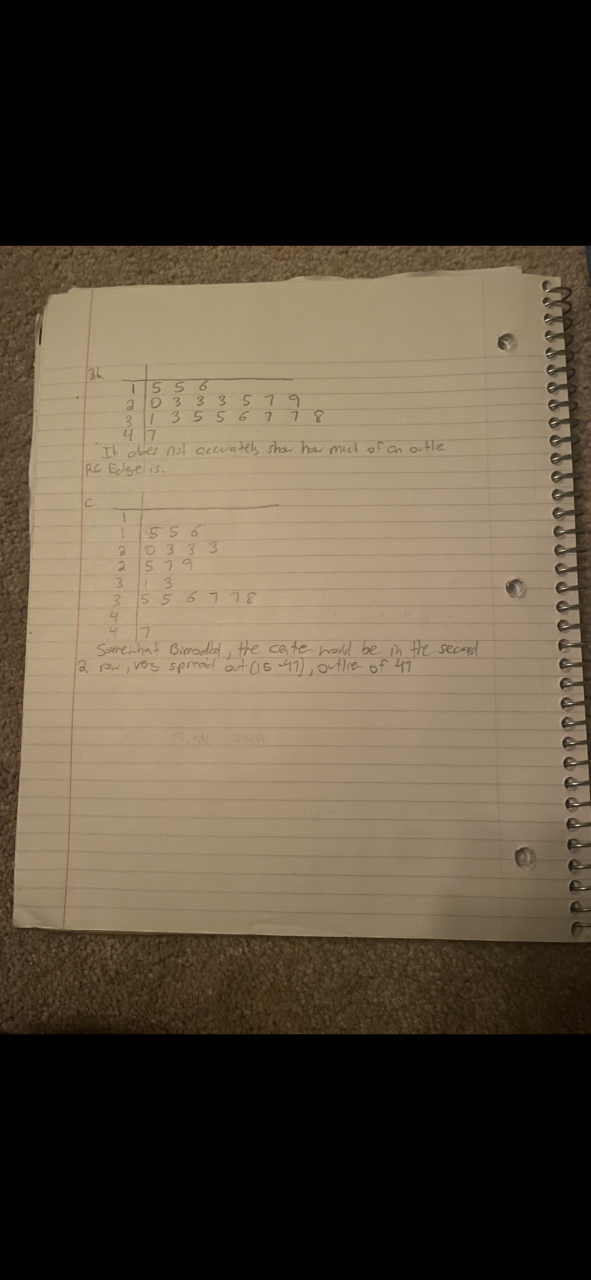 3b
1 | 5 5 6
2 | 0 3 3 3 5 7 9
3 | 1 3 5 5 6 7 7 8
4 | 7
It does not accurately show how much of an outlie
RC Edge is.
c
1 |
1 | 5 5 6
2 | 0 3 3 3
2 | 5 7 9
3 | 1 3
3 | 5 5 6 7 7 8
4 |
4 | 7
Somewhat Bimodal, the cente would be in the second
2 row, very spread out (15-47), outlier of 47